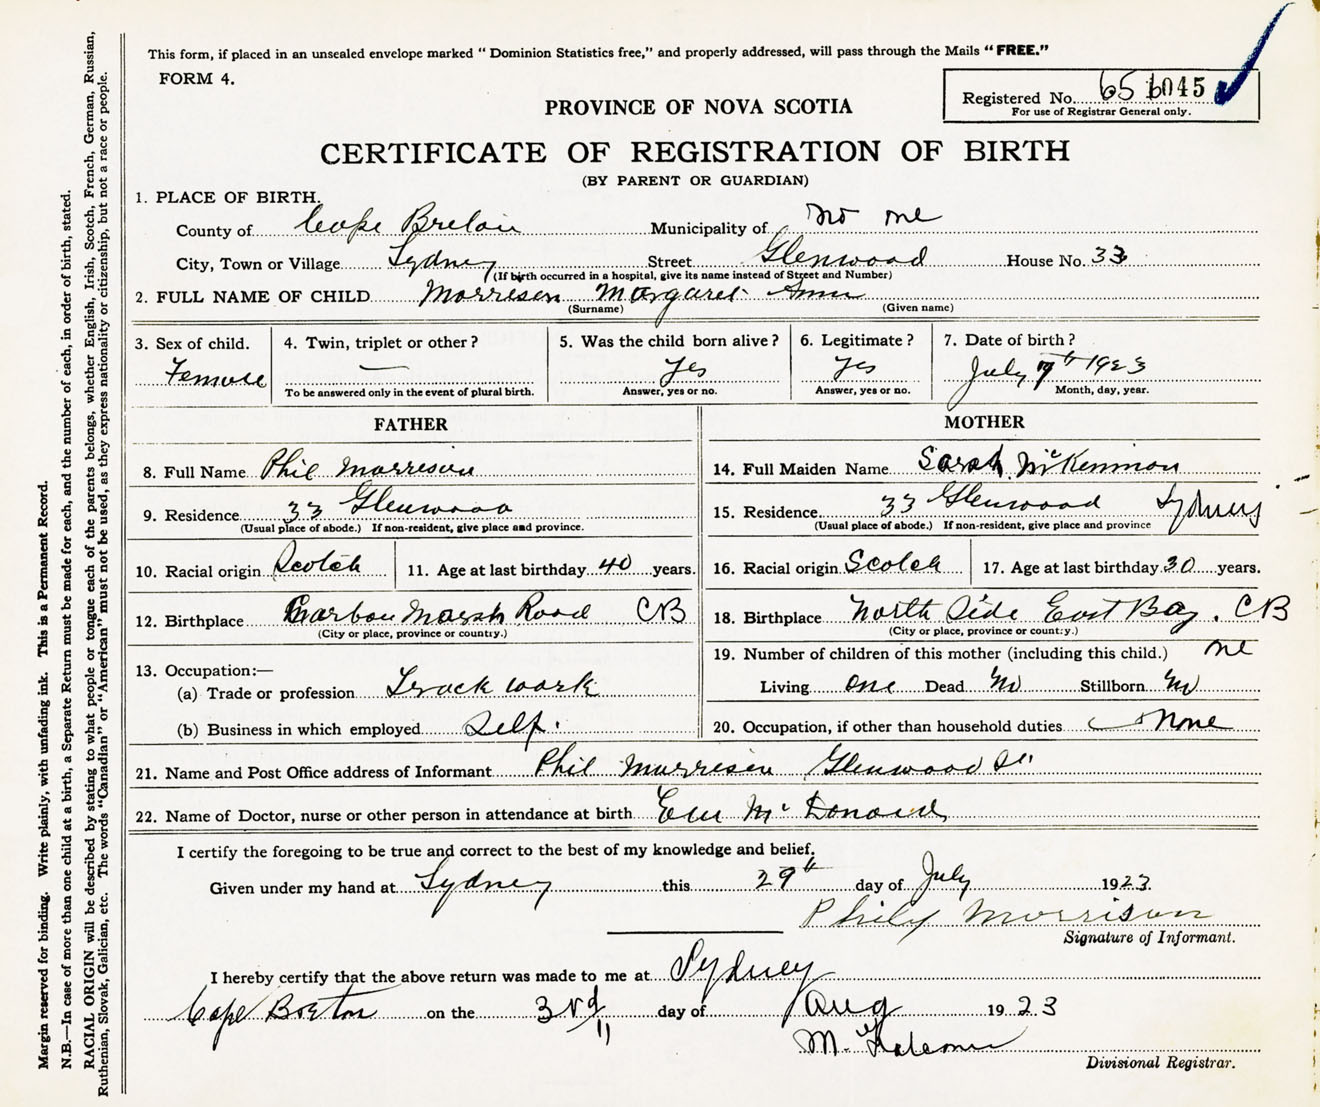 This form, if placed in an unsealed envelope marked “ Dominion Statistics free,” and properly addressed, will pass through the Mails “ FREE.”
FORM 4.
Registered No. 65
For use of Registrar General only.
PROVINCE OF NOVA SCOTIA
CERTIFICATE OF REGISTRATION OF BIRTH
(BY PARENT OR GUARDIAN)
1. PLACE OF BIRTH.
County of Cape Breton Municipality of
City, Town or Village Sydney Street Glenwood House No. 33
(If birth occurred in a hospital, give its name instead of Street and Number)
2. FULL NAME OF CHILD Morrison Margaret Ann
(Surname) (Given name)
3. Sex of child. Female
4. Twin, triplet or other? —
To be answered only in the event of plural birth.
5. Was the child born alive? Yes
Answer, yes or no.
6. Legitimate? Yes
Answer, yes or no.
7. Date of birth? July 1923
Month, day, year.
FATHER
8. Full Name Phil Morrison
9. Residence 33 Glenwood
(Usual place of abode.) If non-resident, give place and province.
10. Racial origin Scotch 11. Age at last birthday 40 years.
12. Birthplace Marsh Road CB
(City or place, province or country.)
13. Occupation:—
(a) Trade or profession work
(b) Business in which employed Self.
MOTHER
14. Full Maiden Name Sarah McKinnon
15. Residence 33 Glenwood Sydney
(Usual place of abode.) If non-resident, give place and province
16. Racial origin Scotch 17. Age at last birthday 30 years.
18. Birthplace North Side East Bay. CB
(City or place, province or country.)
19. Number of children of this mother (including this child.) one
Living one Dead No Stillborn No
20. Occupation, if other than household duties None
21. Name and Post Office address of Informant Phil Morrison Glenwood St.
22. Name of Doctor, nurse or other person in attendance at birth McDonald
I certify the foregoing to be true and correct to the best of my knowledge and belief.
Given under my hand at Sydney this 29th day of July 1923.
Morrison
Signature of Informant.
I hereby certify that the above return was made to me at Sydney
Cape Breton on the 3rd day of Aug 1923
M.
Divisional Registrar.
Margin reserved for binding. Write plainly, with unfading ink. This is a Permanent Record.
N.B.—In case of more than one child at a birth, a Separate Return must be made for each, and the number of each, in order of birth, stated.
RACIAL ORIGIN will be described by stating to what people or tongue each of the parents belongs, whether English, Irish, Scotch, French, German, Russian,
Ruthenian, Slovak, Galician, etc. The words “Canadian” or “American” must not be used, as they express nationality or citizenship, but not a race or people.